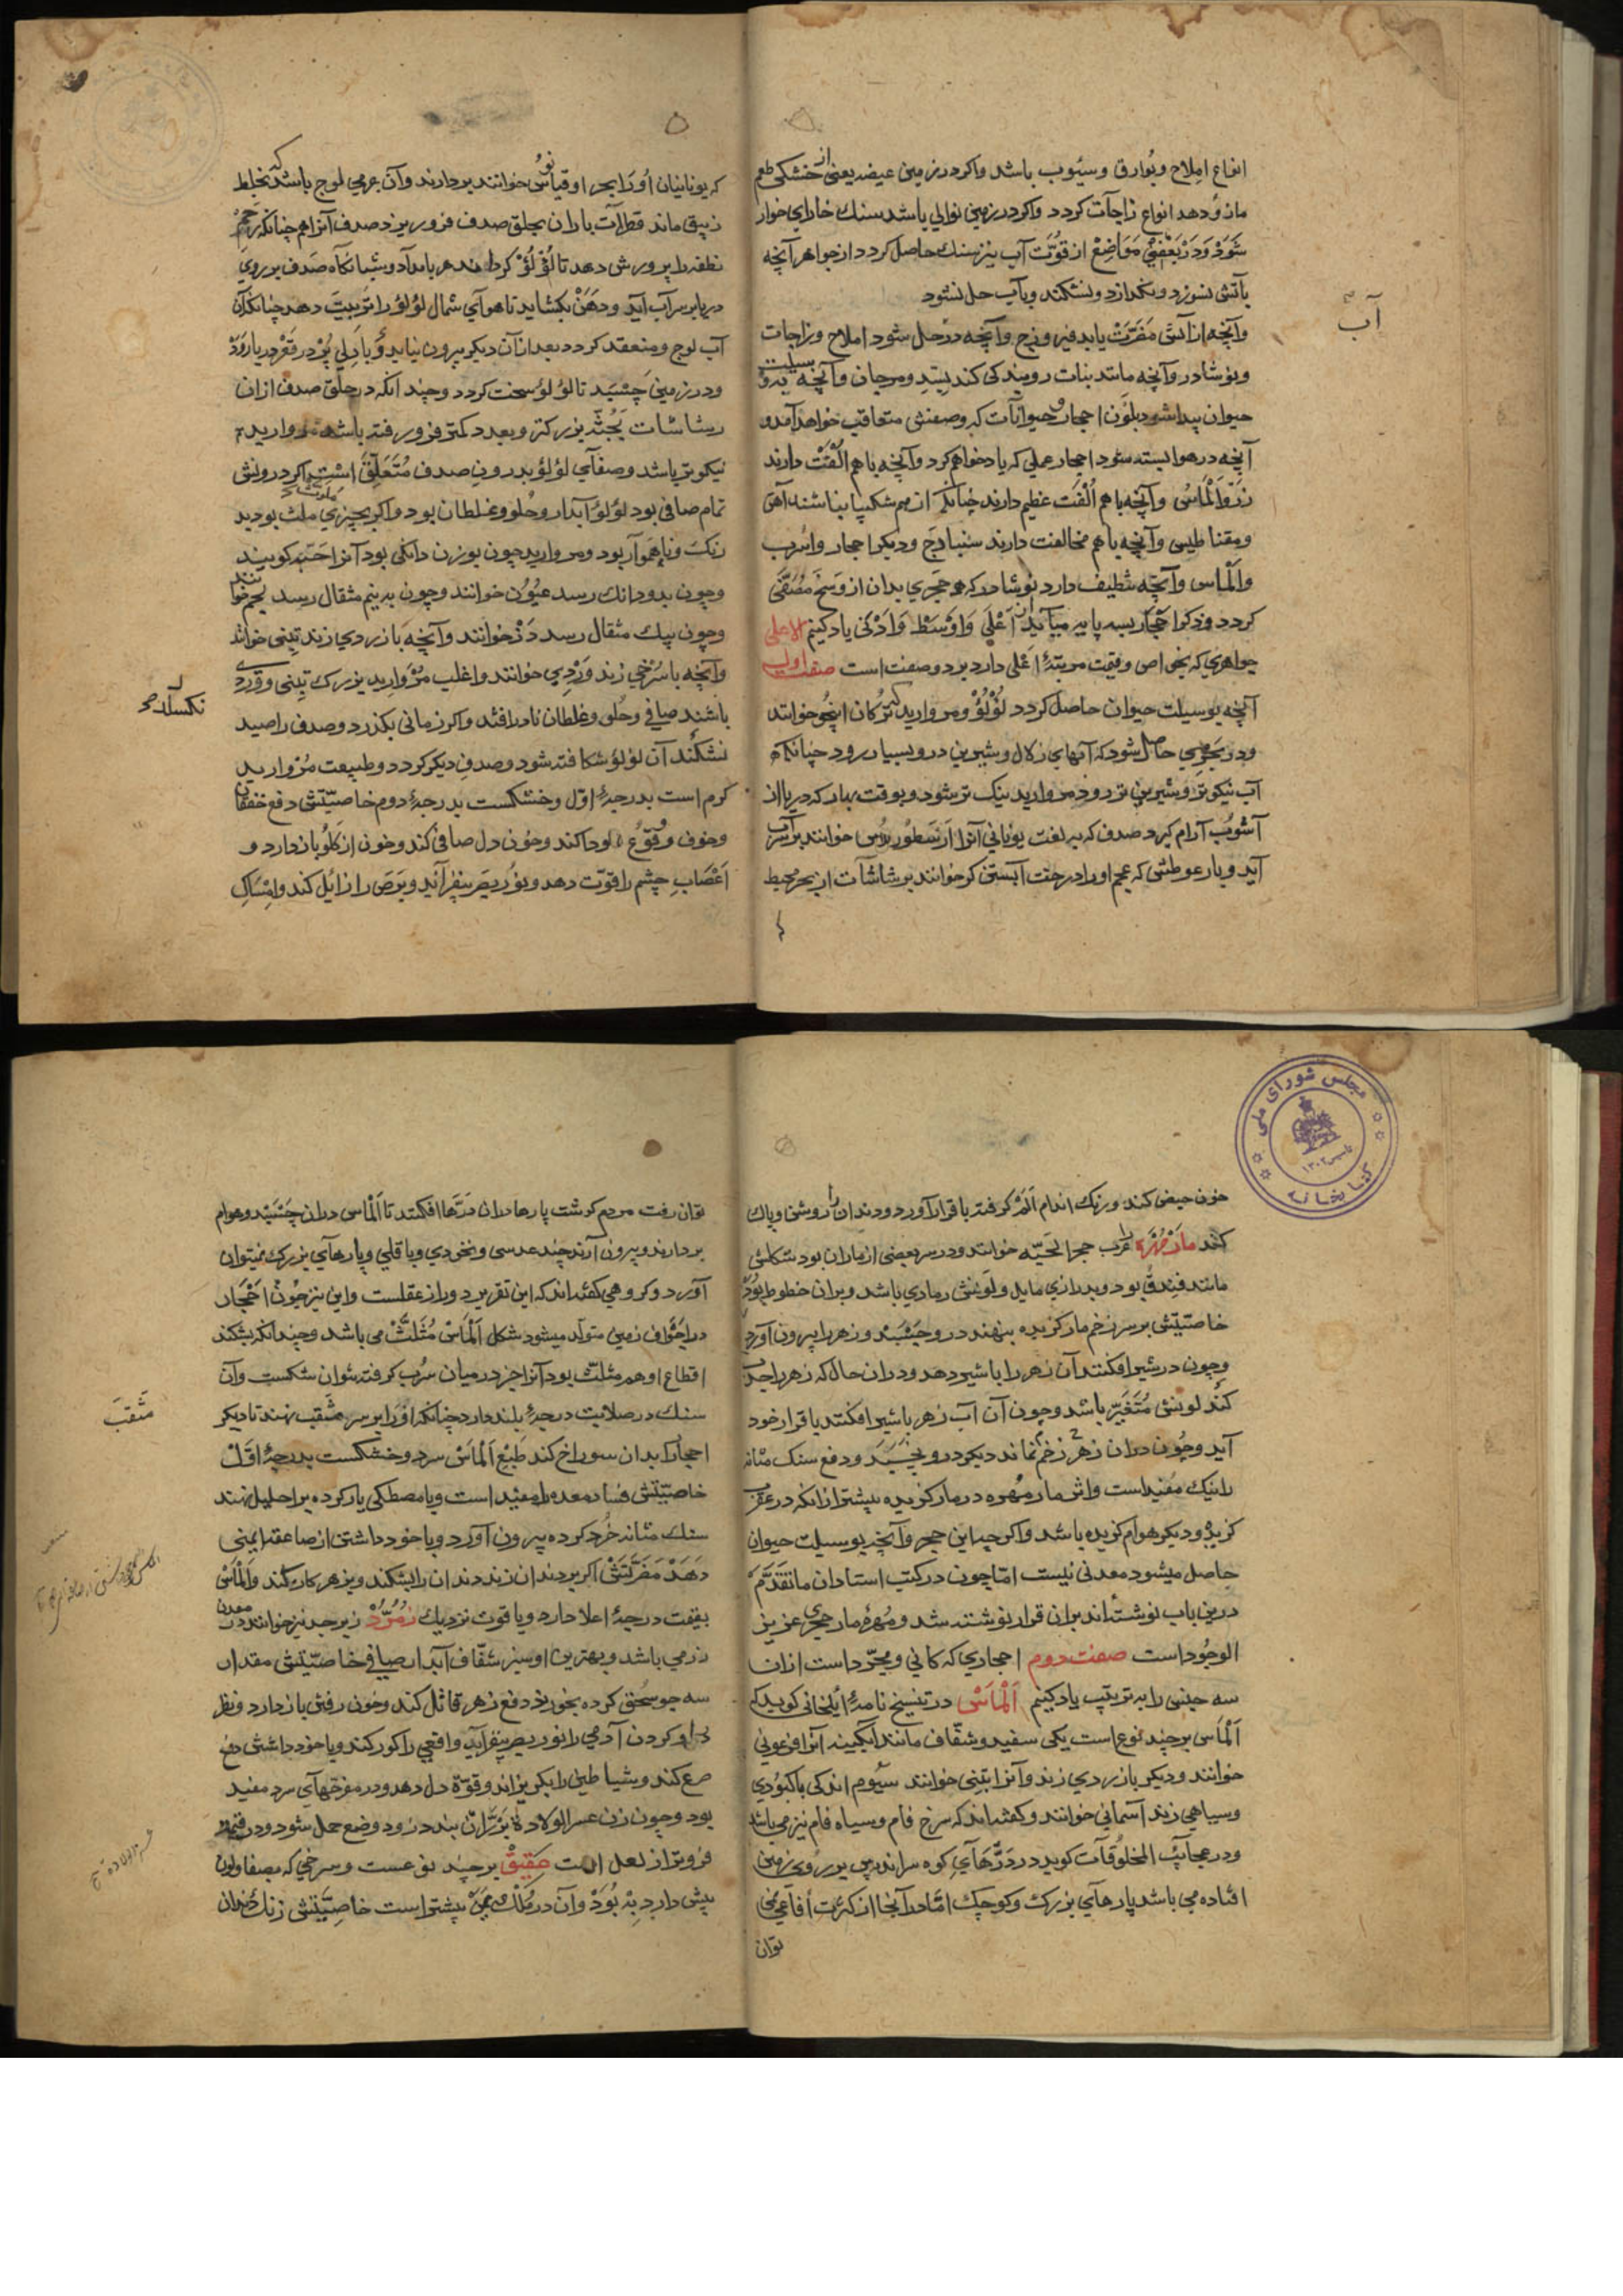 انواع املاح وبوارق وسیوب باشد واکر در زمین عیضه یعنی از خشکی طعم
مازو دهد انواع زاجات کردد واکر در زمین نوالی باشد سنك خارای خوار
شود ودر بعضی مواضع از قوت آب نیز سنك حاصل کردد از جواهر آنچه
بآتش نسوزد ونکدازد ونشکند وبآب حل نشود
وآنچه از آتش مضرت یابد فیروزج وآنچه در حل شود املاح وزاجات
ونوشادر وآنچه مانند بنات رویندکی کند بسد ومرجان وآنچه
حیوان پیدا شود بلون احجار و حیوانات که وصفش متعاقب خواهد آمد و
آنچه در هوا بسته شود احجار عملی که یاد خواهم کرد وآنچه باهم الفت دارند
زر والماس وآنچه باهم الفت عظیم دارند چنانکه از هم شکیبا نباشند آهن
ومقناطیس وآنچه باهم مخالفت دارند سنبادج ودیکر احجار واسرب
والماس وآنچه تنظیف دارد نوشادر که هر حجری بدان از وسخ مصفی
کردد وذکر احجار بسه پایه میآید از اعلی واوسط وادنی یاد کنیم الاعلی
جواهری که بخواص وقیمت مرتبهٔ اعلی دارد بر دو صفت است صفت اول
آنچه بوسیلت حیوان حاصل کردد لؤلؤ ومروارید که ترکان اینجو خوانند
ودر بحری حاصل شود که آبهای زلال وشیرین درو بسیار رود چنانکه
آب نیکوتر وشیرین تر رود مروارید نیک تر شود وبوقت بهار که دریا از
آشوب آرام کیرد صدف که به لغت یونانی آنرا ارسطورس خوانند بر سر آب
آید وباد عوطش که عجم اورا درخت آبستن کر خوانند برشاشات از بحر محیط
آب
که یونانیان اورا بحر اوقیانوس خوانند بردارند وآن جرمی لوج باشد که بخلط
زیبق ماند قطرات باران بحلق صدف فرو ریزد صدف آنرا هم چنانکه رحم
نطفه را پرورش دهد تا لؤلؤ کردا هر بامداد وشبانکاه صدف بر روی
دریا بر سر آب آید ودهن بکشاید تا هوآی شمال لؤلؤ را تربیت دهد چنانکه آن
آب لوج ومنعقد کردد بعد از آن دیکر بیرون نیاید و با دلی پر در قعر دریا رود
ودر زمین چسبد تا لؤلؤ سخت کردد وچندانکه در حلق صدف از آن
رشاشات بجثه بزرکتر وبعدد کمتر فرو رفته باشد مروارید
نیکوتر باشد وصفای لؤلؤ بدرون صدف متعلق است اکر درونش
تمام صافی بود لؤلؤ آبدار وحلو وغلطان بود واکر بچیزی ملوث بود بد
رنک وناهموار بود ومروارید چون بوزن دانکی بود آنرا حبه کویند
وچون بدو دانك رسد عیون خوانند وچون به نیم مثقال رسد نجم خوانند
وچون بیك مثقال رسد در خوانند وآنچه با زردی زند تبنی خوانند
وآنچه با سرخی زند وردی خوانند واغلب مروارید بزرك تبنی ووردی
باشند صافی وحلو وغلطان نادر افتد واکر زمانی بکذرد وصدف را صید
نشکند آن لؤلؤ شکافته شود وصدف دیکر کردد وطبیعت مروارید
کرم است بدرجهٔ اول وخشکست بدرجهٔ دوم خاصیتش دفع خفقان
وخوف وقوع سودا کند وخون دل صافی کند وخون از کلو باز دارد و
اعصاب چشم را قوت دهد ونور بصر بیفزاید وبرص را زائل کند وامساک
خون حیض کند ورنك اندام الم کرفته باقرار آورد ودندان را روشن وپاك
کند مار مهره را عرب حجر الحیه خوانند ودر سر بعضی از ماران بود شکلش
مانند فندق بود وبدرازی مایل ولونش رمادی باشد وبران خطوط بود
خاصیتش بر سر زخم مار کزیده بنهند درو چسبد وزهر را بیرون آورد
وچون در شیر افکنند آن زهر را با شیر دهد ودران حال که زهر را جذب
کند لونش متغیر باشد وچون آن آب زهر باشیر افکند باقرار خود
آید وچون دران زهر زخم نماند دیکر درو نچسبد ودفع سنك مثانه
را نیك مفید است واثر مار مهره در مار کزیده بیشتر از انکه در عقرب
کزیده ودیکر هوام کزیده باشد واکر چه این حجر وآنچه بوسیلت حیوان
حاصل میشود معدنی نیست اما چون در کتب استادان ما تقدم
درین باب نوشته اند برانی قرار نوشته شد ومهرهٔ مار حجری عزیز
الوجود است صفت دوم احجاری که کانی ومجرد است ازان
سه جنس را به ترتیب یاد کنیم الماس در تنسیخ نامهٔ ایلخانی کوید که
الماس بر چند نوع است یکی سفید وشفاف مانند آبکینه آنرا فرعونی
خوانند ودیکر با زردی زند وآنرا تبنی خوانند سیوم اندکی با کبودی
وسیاهی زند آسمانی خوانند وکفته اند که سرخ فام وسیاه فام نیز می باشد
ودر عجایب المخلوقات کوید در درهای کوه سراندیب بر روی زمین
افتاده می باشد پارهای بزرك وکوچك اما در آنجا از کثرت افاعی نمی
توان
مجلس شورای ملی
کتابخانه
تاسیس ۱۳۰۲
توان رفت مردم کوشت پارها دران درها افکند تا الماس دران چسبد وهوام
بردارند وبیرون آرند چند عدسی ونخودی وباقلی وپارهای بزرك نمیتوان
آورد وکروهی کفته اند که این تقریر دور از عقلست واین نیز چون احجار
در اجواف زمین متولد میشود شکل الماس مثلث می باشد وچندانکه بشکند
اقطاع او هم مثلث بود آنرا جز در میان سرب کرفته نتوان شکست وآن
سنك در صلابت درجهٔ بلند دارد چنانکه اورا بر سر مثقب نهند تا دیکر
احجار را بدان سوراخ کند طبع الماس سرد وخشکست بدرجهٔ اول
خاصیتش فساد معده را مفید است وبا مصطکی یار کرده بر احلیل نهند
سنك مثانه خرد کرده بیرون آورد وبا خود داشتن از صاعقه ایمنی
دهد مضرتش اکر بر دندان زند دندان را بشکند وبزهر کار کند والماس
بقیمت درجهٔ اعلا دارد وبا قوت نزدیك زمرد زبرجد نیز خوانند در معدن
زر می باشد وبهترین او سبز شفاف آبدار صافی خاصیتش مقدار
سه جو سحق کرده بخورند دفع زهر قاتل کند وخون رفتن باز دارد ونظر
او کردن آدمی را نور بصر بیفزاید وافعی را کور کند وبا خود داشتن دفع
صرع کند وشیاطین را بکریزاند وقوة دل دهد ودر مفرحهای سرد مفید
بود وچون زن عسر الولاده بر ران بندد زود وضع حمل شود ودر قیمت
فروتر از لعل است عقیق بر چند نوعست وسرخی که بصفا ولون
بیش دارد به بود وآن در ملك یمن بیشتر است خاصیتش زنك دندان
مثقب